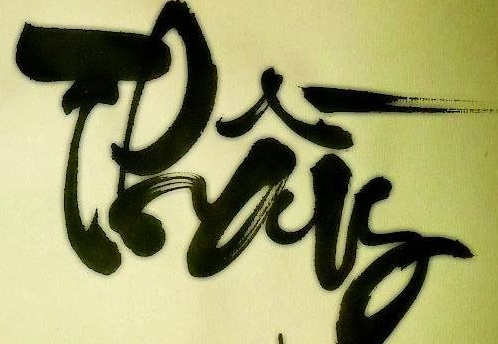 Thầy